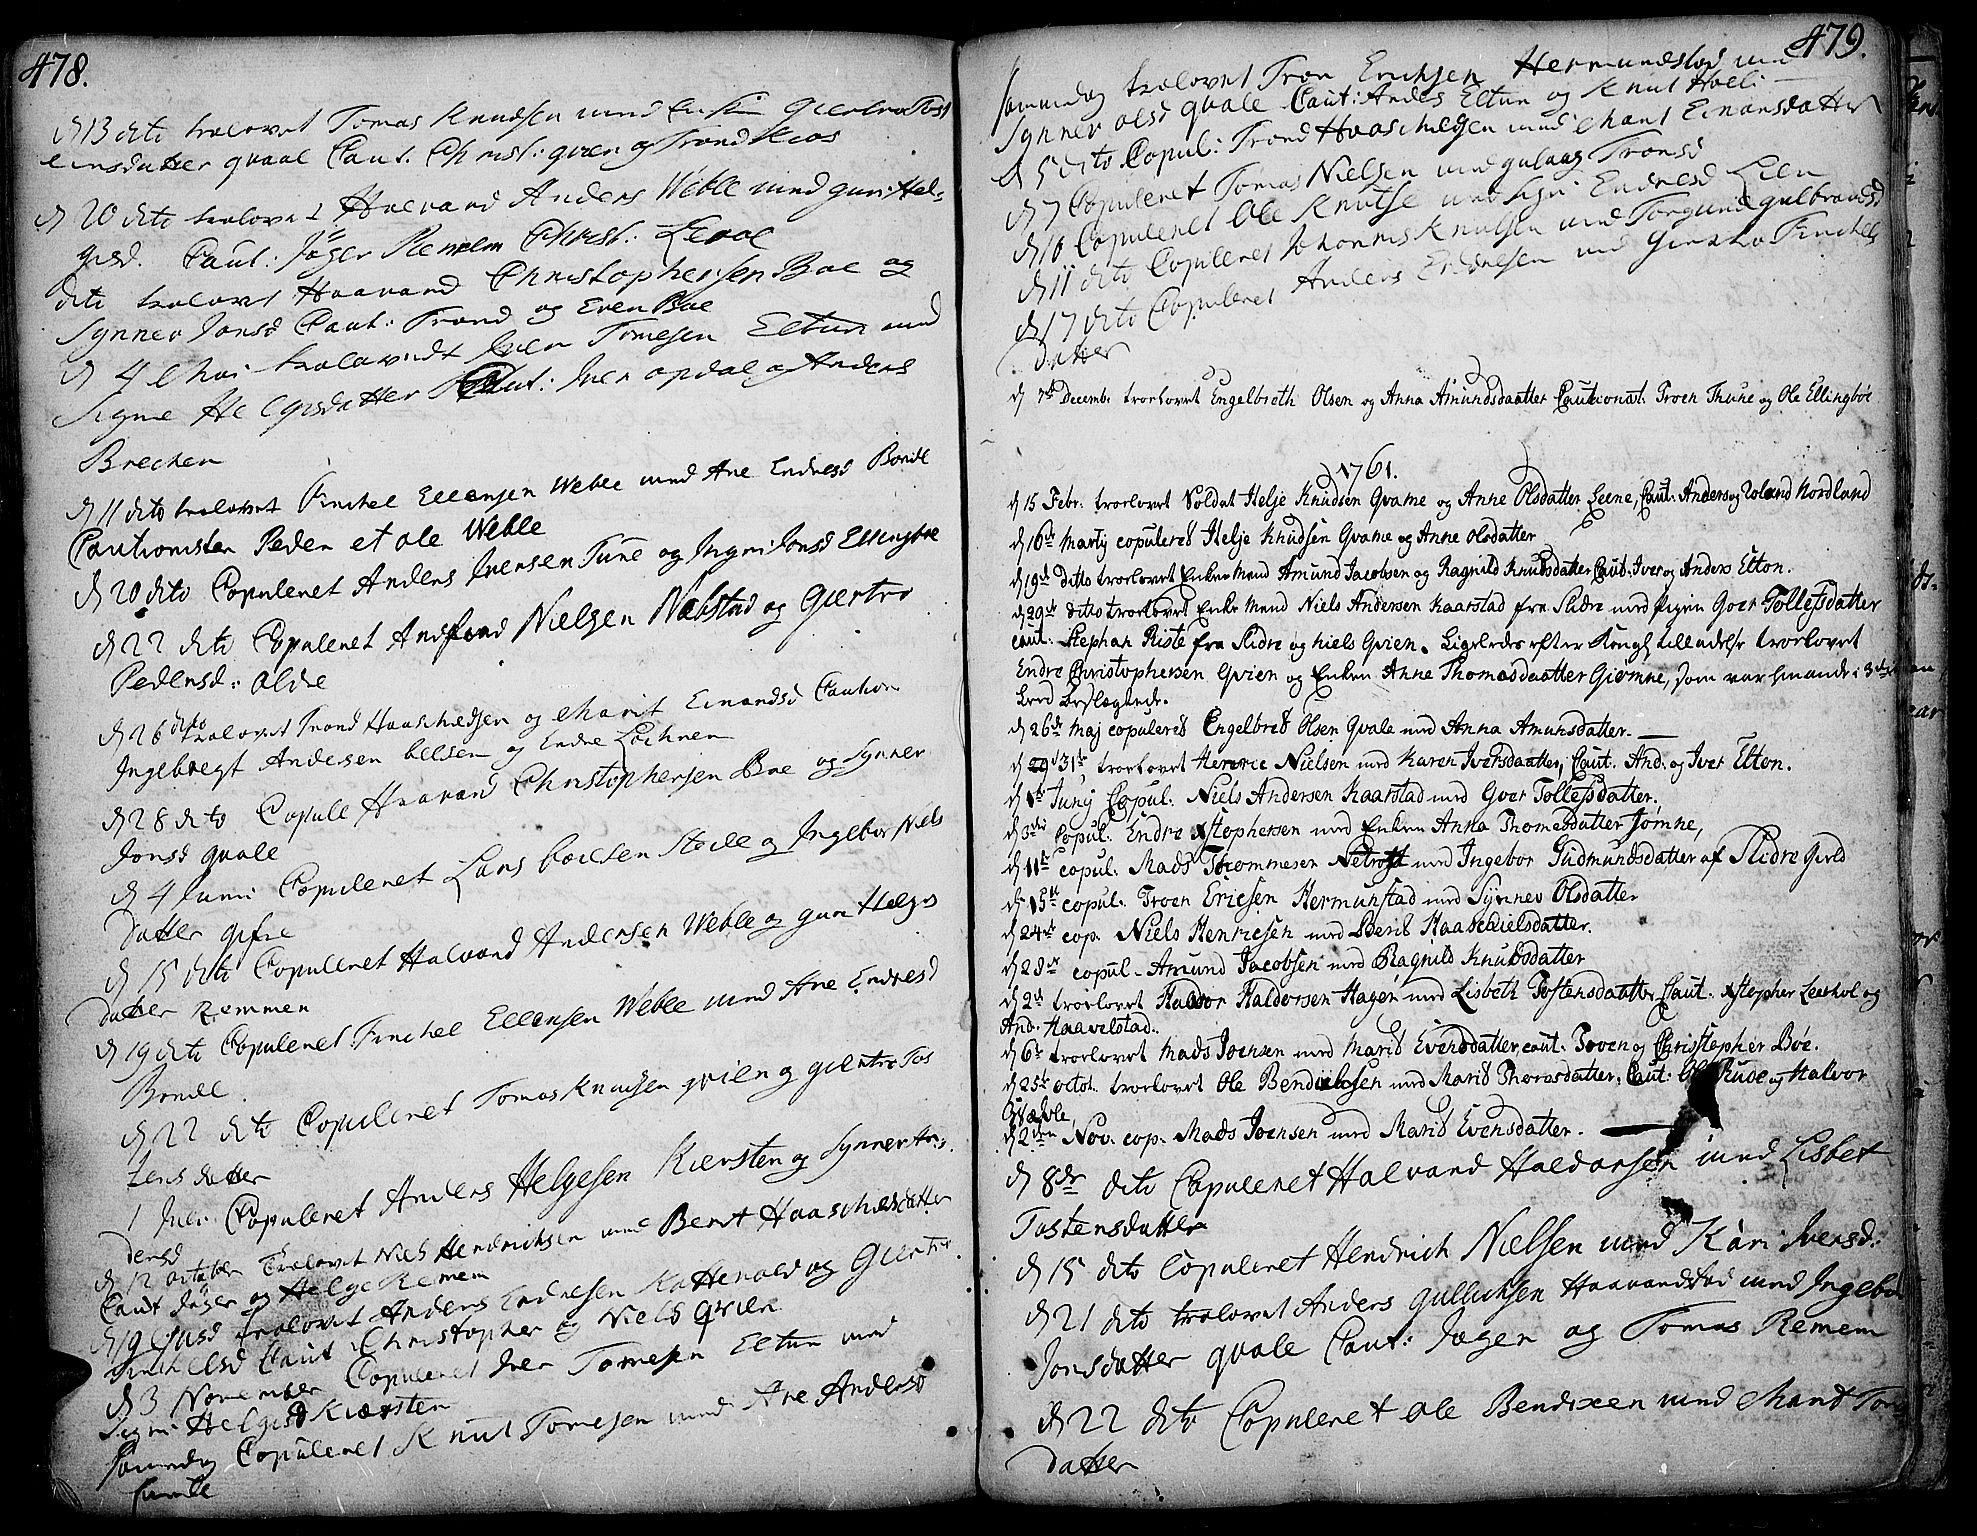 478.
d 13 dito trolovet Tomas Knudsen med Giertrø Tost
einsdatter quale Caut. Christ: qvien og Trond Kios
d 20 dito trolovet Haevard Anders Weble med guri Hel-
gesd. Caut: Jøger Remem Christ: Leroe
dito trolovet Haavard Christophersen Boe og
Synnev Jonsd Caut: Trond og Even Boe
d 4 Mai trolovedt Iver Tomesen Eltun med
Signe Helgisdatter Caut: Iver opdal og Anders
Brecken
d 11 dito trolovet Finchel Ellensen Weble med Ane Endresd Bonde
Cautionister Peder et ole Weble
d 20 dito Copuleret Anders Iversen Tune og Ingri Jonsd Ellingboe
d 22 dito Copuleret Andfind Nielsen Nøbstad og Giertro
Pedersd: oldre
d 26 dito trolovet Trond Haaschelsen og Marit Einarsd Caution
Ingebregt Andersen Eelsen og Endre Lochnem
d 28 dito Copule Haavard Christophersen Boe og Synner
Jonsd quale
d 4 Juni Copuleret Lars boelsen Steile og Ingebor Niels
datter gifre
d 15 dito Copuleret Halvard Andersen Weble og guri Helges
datter Remmen
d 19 dito Copuleret Finchel Ellensen Weble med Ane Endresd
Bonde.
d 22 dito Copuleret Tomas Knudsen qvien og giertro Tos
tensdatter
1 Juli Copuleret Anders Helgesen Kiersten og Synner An:
dersd
d 12 october trolovet Niels Hendrichsen med Berit Haaschelsdatter
Caut Jøger og Helge Remem
d 19 ejusd trolovet Anders Endresen Kattevold og Giertro
Finchelsd Caut Christopher og Niels Qvien
d 3 November Copuleret Iver Tomesen Eltun med
Signe Helgesd Kiærsten
samedag Copuleret Knut Tomesen med Ane Andersd
479.
samedag trolovet Tron Erichsen Hermundstad med
Synnev olsd quale Caut: Anders Eltun og Knut Holli
d 5 dito Copul: Trond Haaschelsen med Marit Einarsdatter
d 7 Copuleret Tomas Nielsen med gulaag Tronsd
d 10 Copuleret Ole Knutse med Endresd Lien
d 11 dito Copuleret Johannis Knutsen med Torgund gulbrandsd
d 17 dito Copuleret Anders Endresen med Giertro Finchels
datter
d 7de Decemb: trorlovet Engelbreth Olsen og Anna Amundsdaatter Cautionist. Troen Thune og Ole Ellingbøe
1761.
d 15 Febr. trorlovet Soldat Helje Knudsen Qvame og Anne Olsdatter Leene, Caut: Anders og Noland Nordland
d 16de Martij copulered Helje Knudsen Qvame og Anne Olsdatter
d 19de ditto trorlovet Enkemand Amund Jacobsen og Ragnild Knudsdatter Caut. Iver og Anders Elton.
d 29de ditto trorlovet Enke Mand Niels Andersen Kaarstad fra Slidre med Pigen Goer Tollefsdatter
caut: Stephan Riste fra Slidre og Niels Qvien. Ligeledes efter Kongl. tilladelse trorlovet
Endre Christophersen Qvien og Enken Anne Thomasdaatter Giømne, som var hinande i 3die
Leed beslægtede.
d 26de Maj copulered Engelbred Olsen Qvale med Anna Amunsdatter.
d 29 31te trorlovet Henric Nielsen med Karen Iversdaatter, Caut. And: og Iver Elton.
d 1te Junij Copul: Niels Andersen Kaarstad med Goer Tollefsdatter.
d 3die Copul: Endre Xstophersen med Enken Anna Thomesdatter Jømne,
d 11te copul. Mads Thommesen med Ingebor Gudmundsdatter af Slidre Gield
d 15de copul. Troen Ericsen Hermunstad med Synnev Olsdatter
d 24de cop. Niels Henricsen med Berid Haaschielsdatter.
d 28de copul. Amund Jacobsen med Ragnild Knudsdatter
d 2de trorlovet Haldor Haldorsen Hagen med Lisbeth Tostensdaatter Caut. Xstopher Leerhol og
And. Haavelstad.
d 6te trorlovet Mads Joensen med Marid Evensdatter, caut. Joven og Christopher Bøe.
d 25te octob. trorlovet Ole Bendichsen med Marid Thorosdatter. Caut: Ole Rude og Halvor
Qvale,
d 2den Nov. cop. Mads Joensen med Marid Evensdatter.
d 8de dito Copuleret Halvard Haldorsen med Lisbet
Tostensdatter
d 15 dito Copuleret Hendrich Nielsen med Kari Iversd:
d 21 dito trolovet Anders Gullichsen Haavardstad med Ingebor
Jonsdatter quale Caut: Jøger og Tomas Remem
d 22 dito Copuleret ole Bendixen med Marit Tor
datter